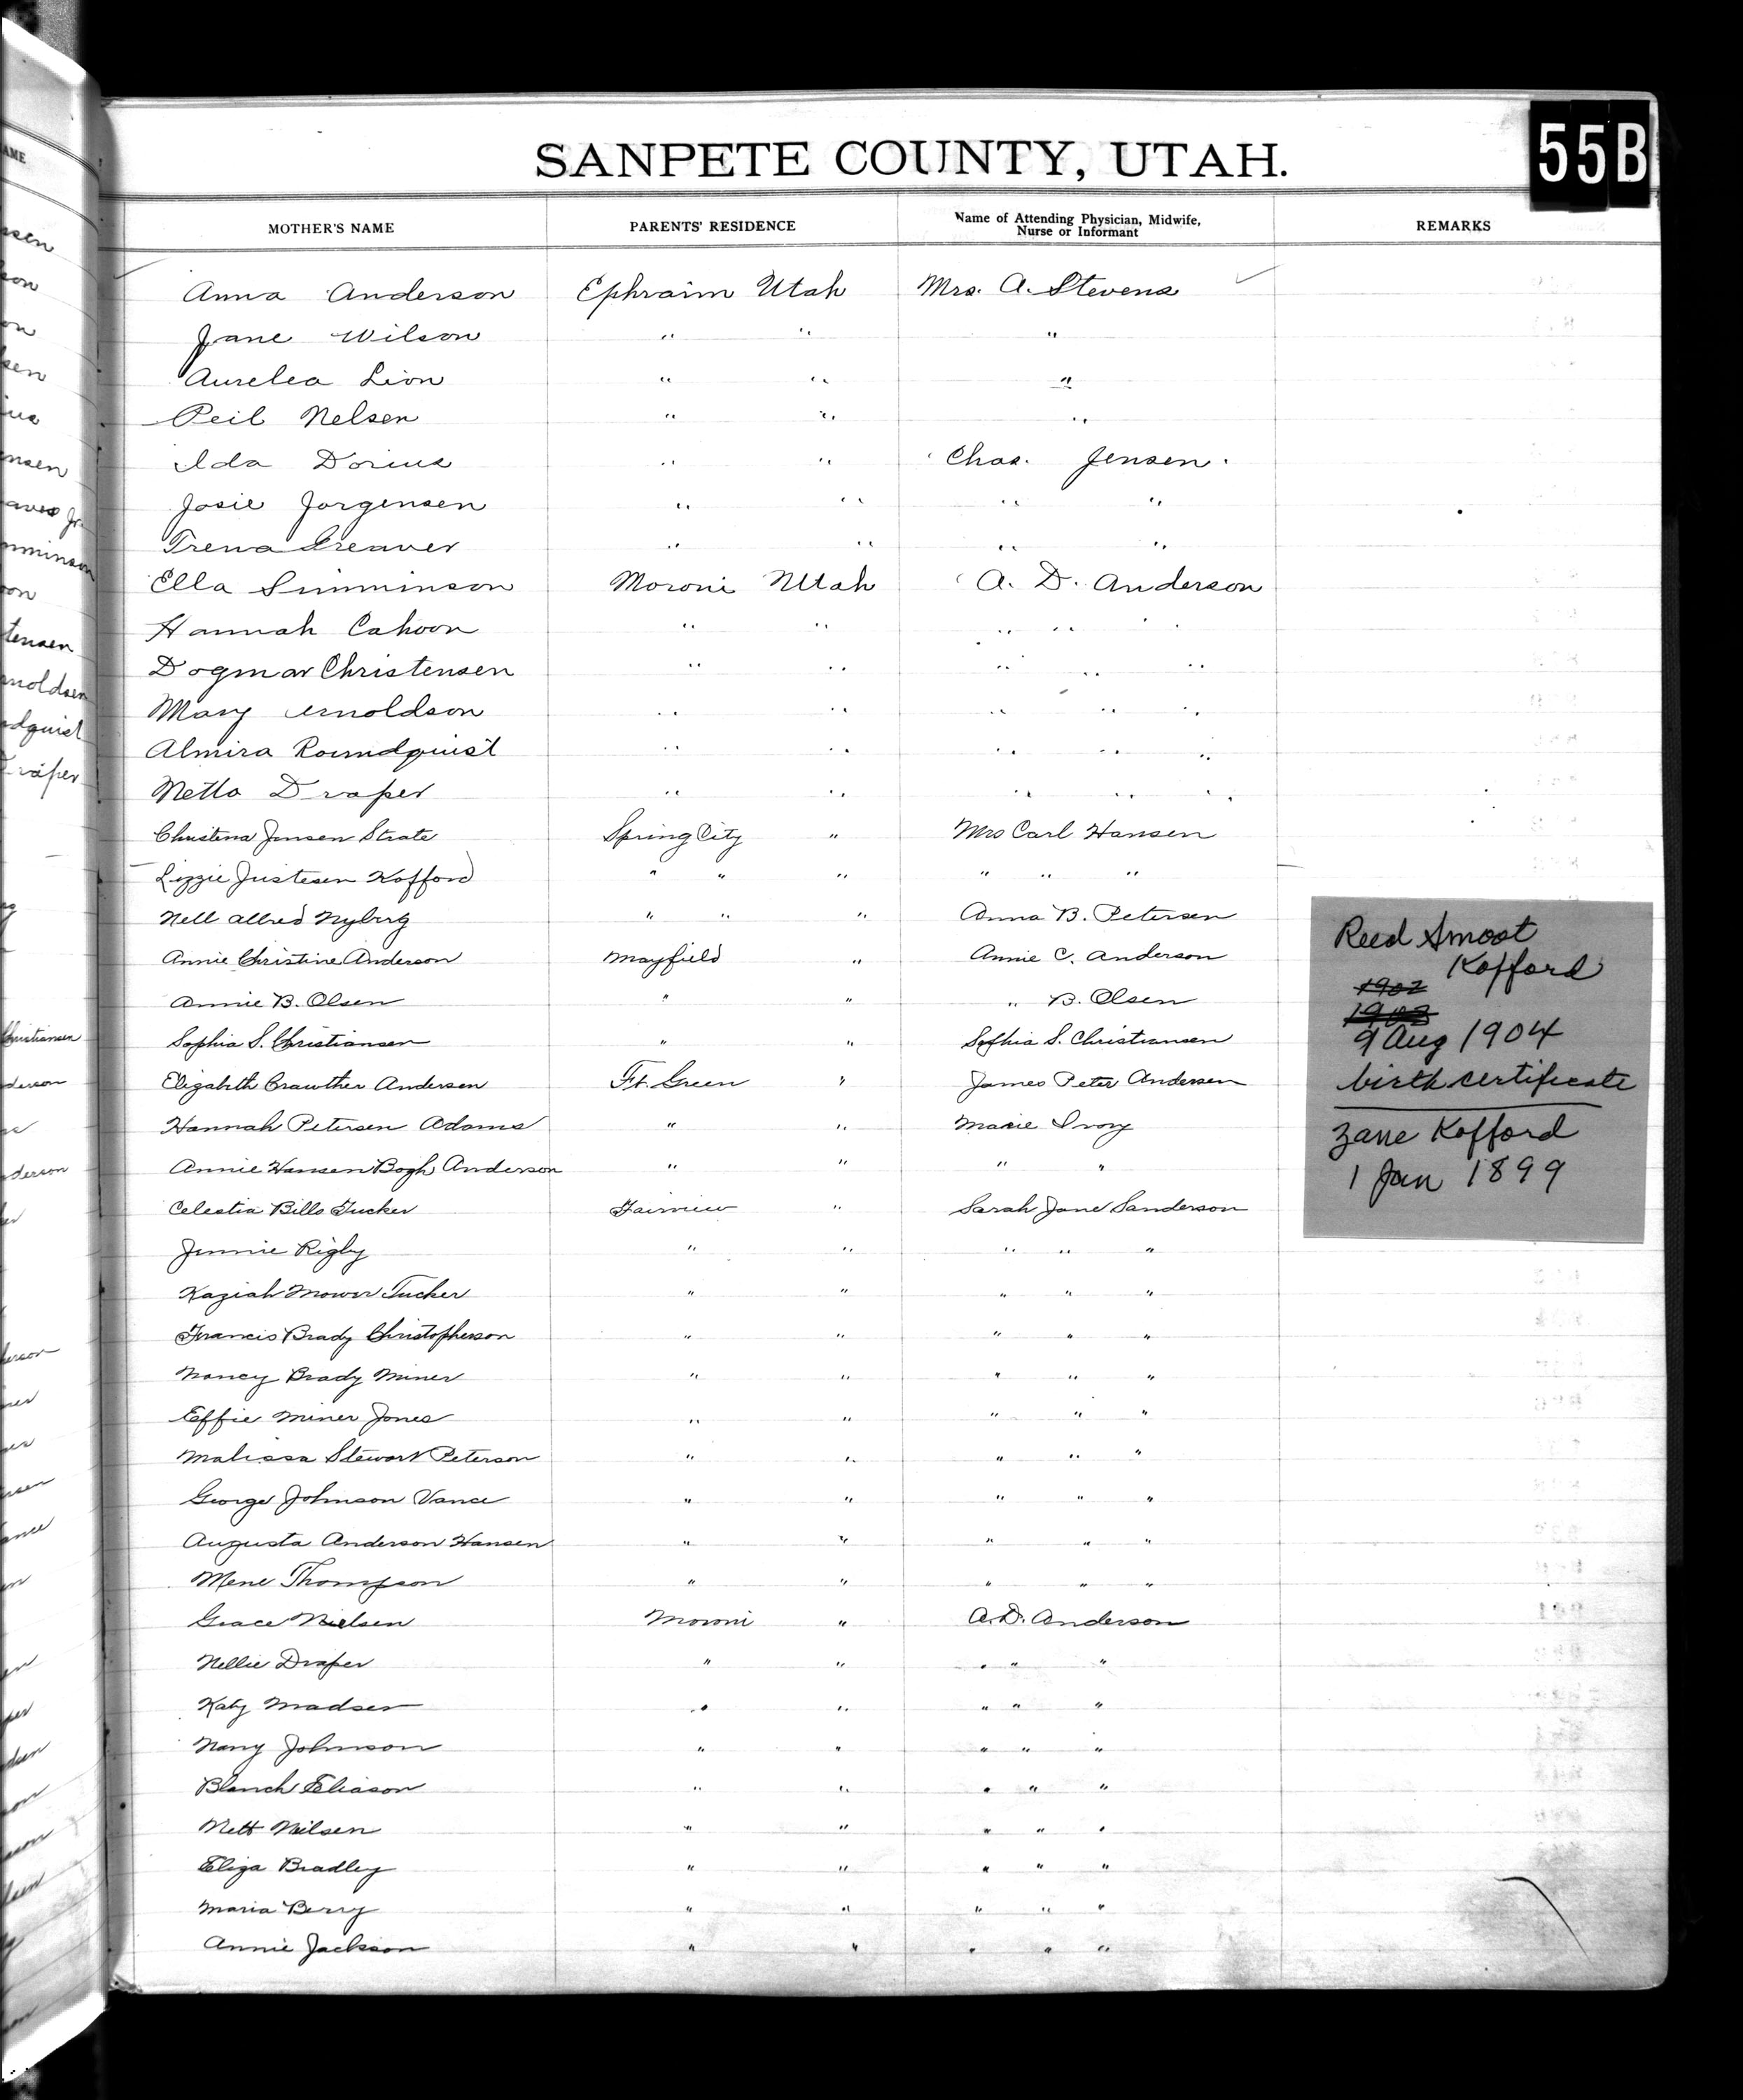 SANPETE COUNTY, UTAH.
55B
MOTHER'S NAME PARENTS' RESIDENCE Name of Attending Physician, Midwife, Nurse or Informant REMARKS
Anna Anderson Ephraim Utah Mrs. A. Stevens
Jane Wilson " " "
Aurelea Lion " " "
Peil Nelsen " " "
Ida Dorius " " Chas. Jensen.
Josie Jorgensen " " " "
Trena Greaves " " " "
Ella Simminson Moroni Utah A. D. Anderson
Hannah Cahoon " " " " "
Dogmar Christensen " " " " "
Mary Arnoldson " " " " "
Almira Roundquist " " " " "
Netta Draper " " " " "
Christena Jensen Strate Spring City " Mrs Carl Hansen
Lizzie Justesen Kofford " " " " " "
Nell Allred Nyberg " " " Anna B. Petersen
Annie Christine Anderson Mayfield " Annie C. Anderson
Annie B. Olsen " " " B. Olsen
Sophia S. Christiansen " " Sophia S. Christiansen
Elizabeth Crawther Andersen Ft. Green " James Peter Andersen
Hannah Petersen Adams " " Marie Ivory
Annie Hansen Bogh Anderson " " " "
Celestia Bills Tucker Fairview " Sarah Jane Sanderson
Jennie Rigby " " " " "
Kaziah Mower Tucker " " " " "
Francis Brady Christopherson " " " " "
Nancy Brady Miner " " " " "
Effie Miner Jones " " " " "
Malissa Stewart Peterson " " " " "
George Johnson Vance " " " " "
Augusta Anderson Hansen " " " " "
Mene Thompson " " " " "
Grace Nielsen Moroni " A. D. Anderson
Nellie Draper " " " " "
Katy Madsen " " " " "
Nany Johnson " " " " "
Blanch Eliason " " " " "
Nett Nilsen " " " " "
Eliza Bradley " " " " "
Maria Berry " " " " "
Annie Jackson " " " " "
Reed Smoot
Kofford
1902
1903
9 Aug 1904
birth certificate
Zane Kofford
1 Jan 1899